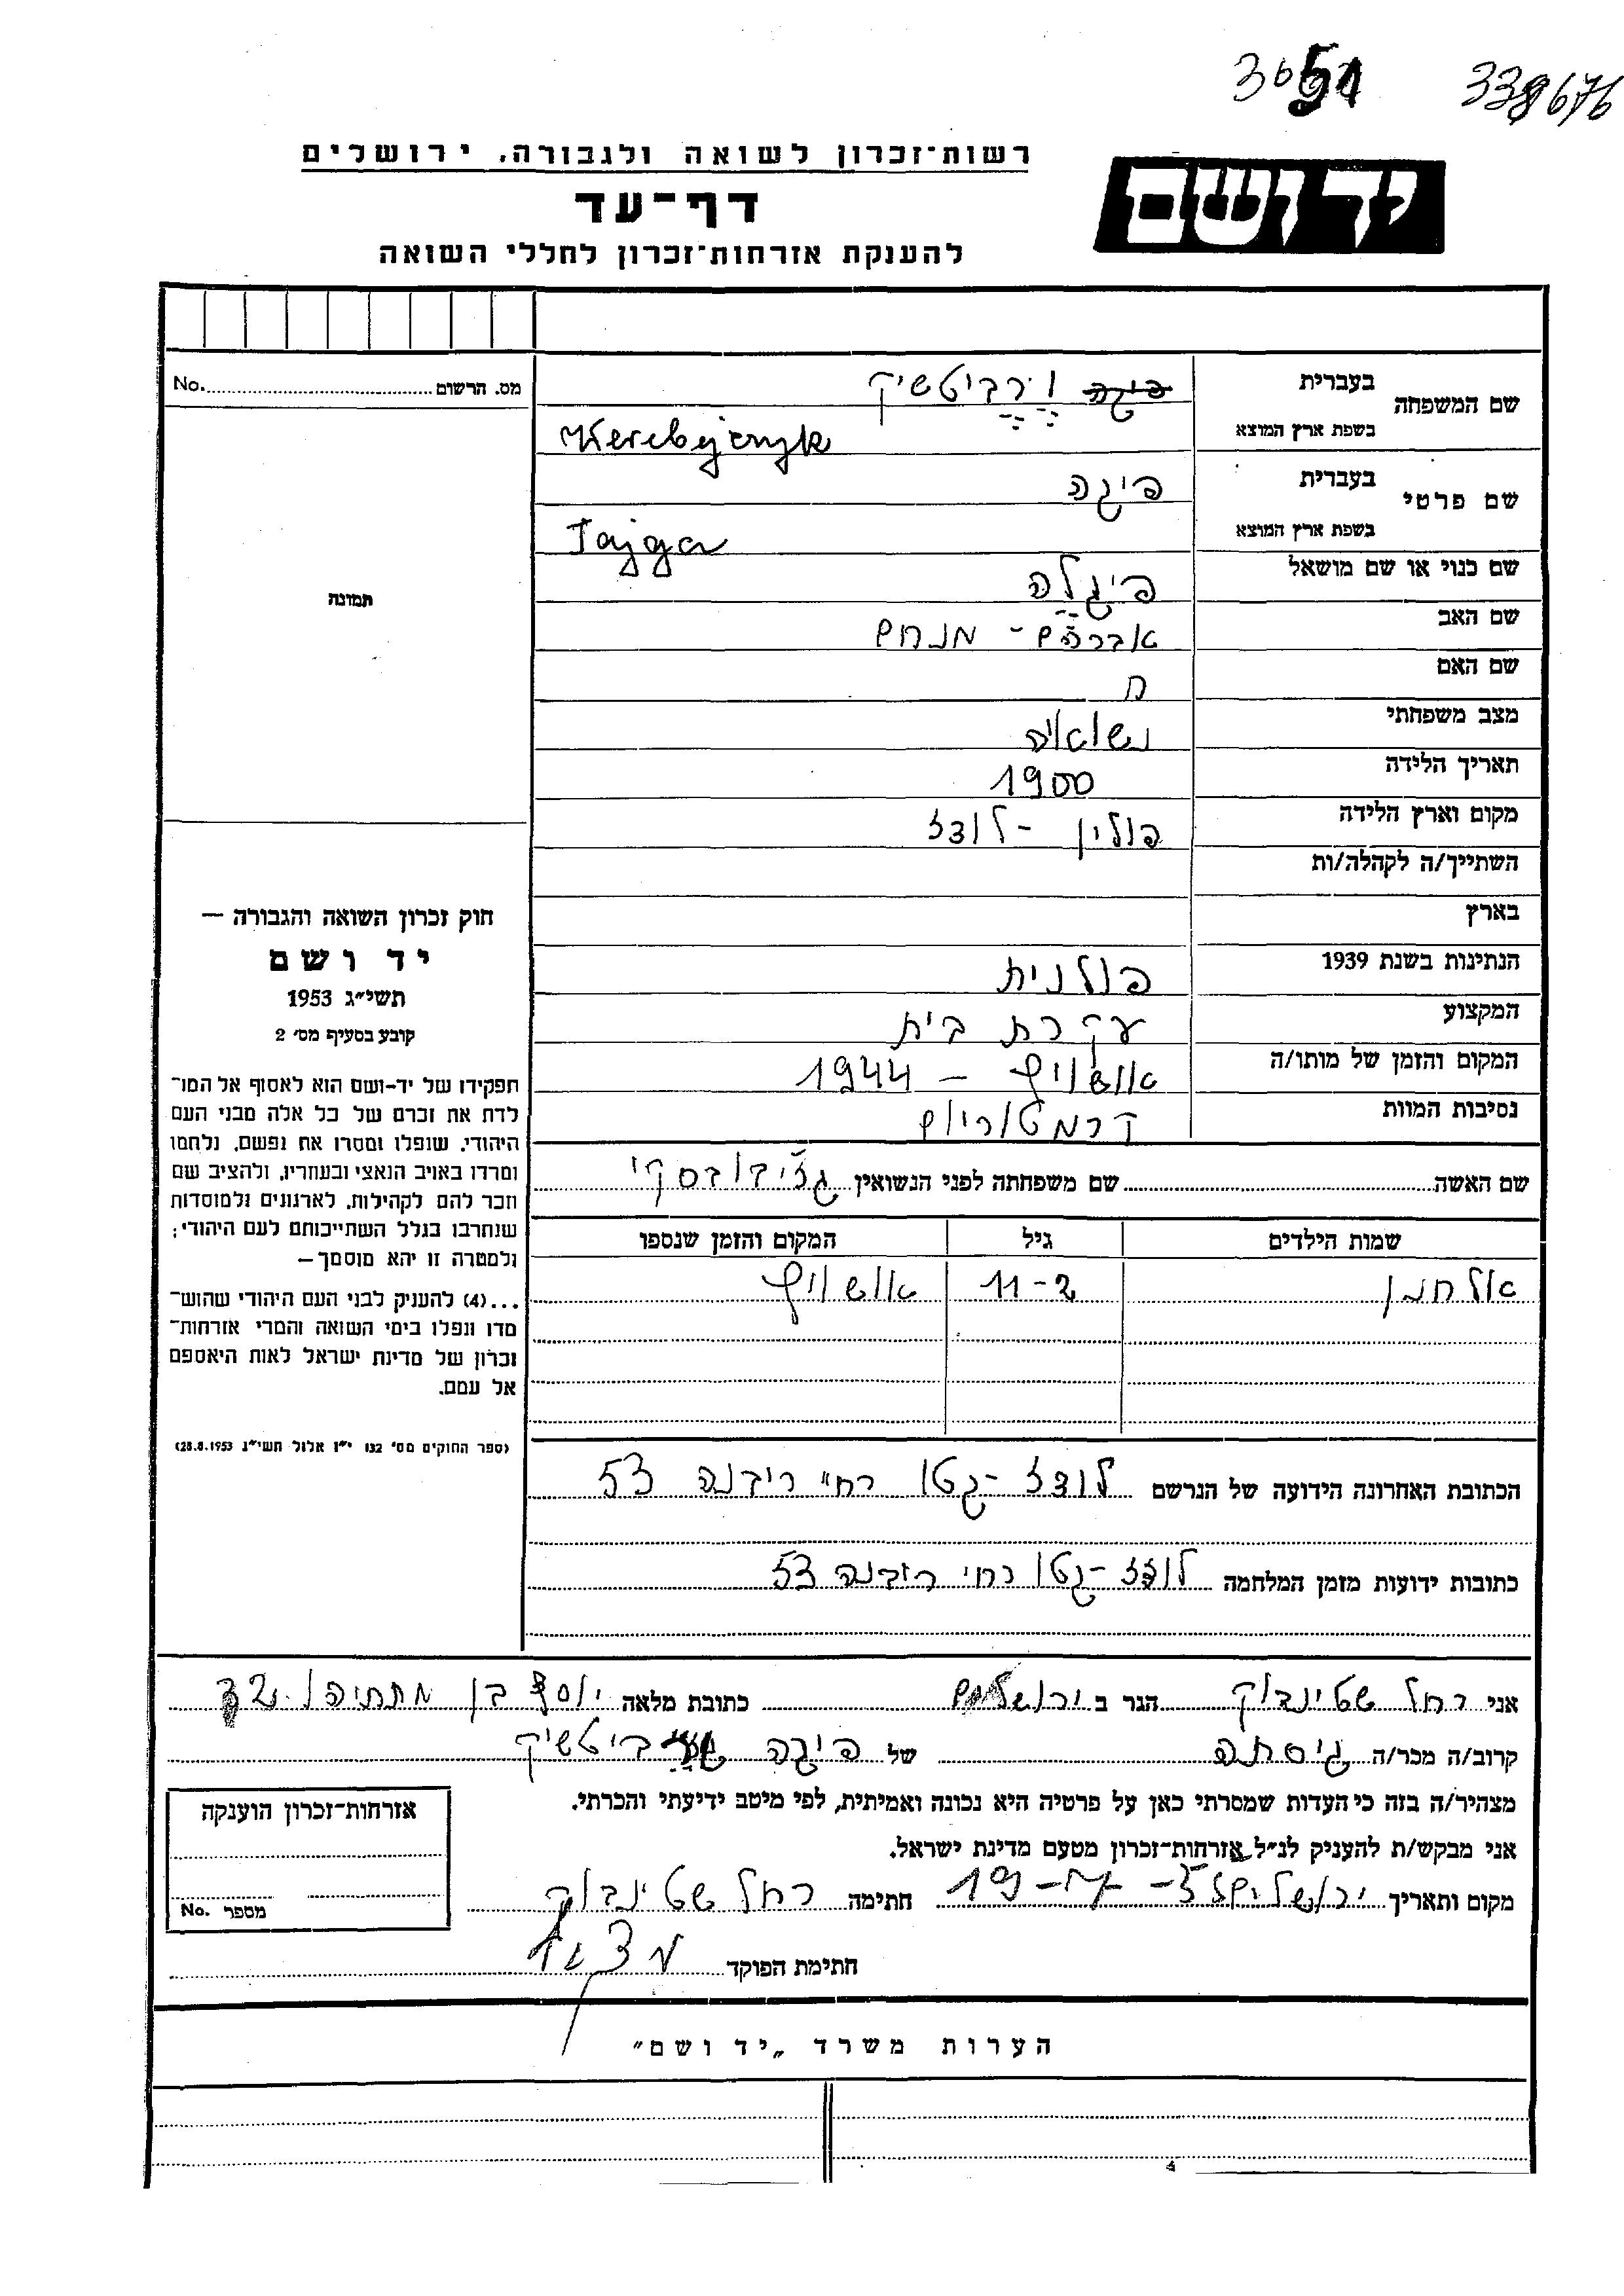 338676
רשות־זכרון לשואה ולגבורה, ירושלים
יד ושם
דף־עד
להענקת אזרחות־זכרון לחללי השואה
מס. הרשום No.
תמונה
שם המשפחה
בעברית ורביטשיק
בשפת ארץ המוצא Werebejczyk
שם פרטי
בעברית פיגה
בשפת ארץ המוצא Fajga
שם כנוי או שם מושאל פיגלה
שם האב אברהם - מנחם
שם האם ח
מצב משפחתי נשואה
תאריך הלידה 1900
מקום וארץ הלידה פולין - לודז
השתייך/ה לקהלה/ות
בארץ
הנתינות בשנת 1939 פולנית
המקצוע עקרת בית
המקום והזמן של מותו/ה אושוויץ - 1944
נסיבות המוות קרמטוריום
שם האשה שם משפחתה לפני הנשואין
שמות הילדים גיל המקום והזמן שנספו
אלחנן 11-2 אושוויץ
הכתובת האחרונה הידועה של הנרשם לודז - גטו רח' ריבנה 53
כתובות ידועות מזמן המלחמה לודז - גטו רח' ריבנה 53
חוק זכרון השואה והגבורה —
יד ושם
תשי״ג 1953
קובע בסעיף מס׳ 2
תפקידו של יד-ושם הוא לאסוף אל המו־
לדת את זכרם של כל אלה מבני העם
היהודי, שנפלו ומסרו את נפשם, נלחמו
ומרדו באויב הנאצי ובעוזריו, ולהציב שם
וזכר להם לקהילות, לארגונים ולמוסדות
שנחרבו בגלל השתייכותם לעם היהודי;
ולמטרה זו יהא מוסמך —
...(4) להעניק לבני העם היהודי שהוש־
מדו ונפלו בימי השואה והמרי אזרחות־
זכרון של מדינת ישראל לאות היאספם
אל עמם.
(ספר החוקים מס׳ 132 י״ז אלול תשי״ג 28.8.1953)
אני רחל שטינבוק הגר ב ירושלים כתובת מלאה יוסף בן מתתיהו
קרוב/ה מכר/ה גיסתה של פיגה ורביטשיק
מצהיר/ה בזה כי העדות שמסרתי כאן על פרטיה היא נכונה ואמיתית, לפי מיטב ידיעתי והכרתי.
אני מבקש/ת להעניק לנ״ל אזרחות־זכרון מטעם מדינת ישראל.
מקום ותאריך ירושלים חתימה רחל שטינבוק
חתימת הפוקד
אזרחות־זכרון הוענקה
מספר No.
הערות משרד „יד ושם״
4